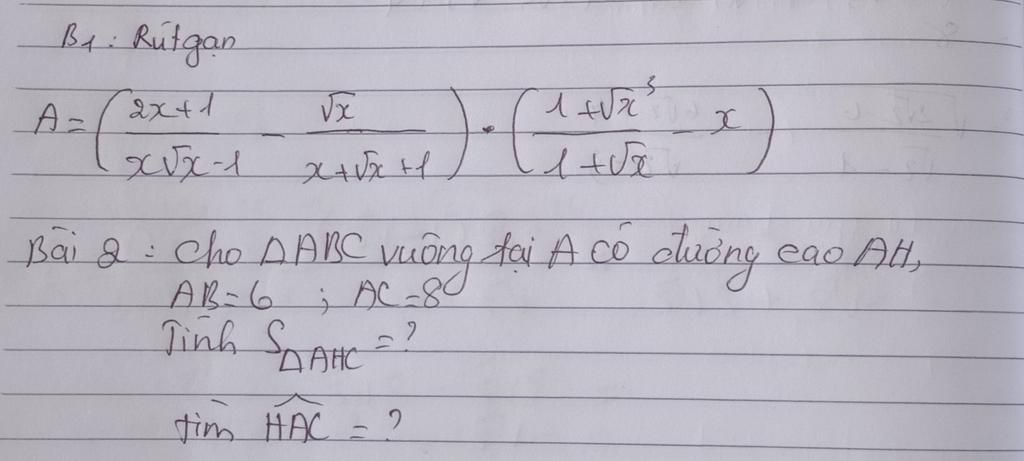 B1: Rút gọn
A = ( (2x+1)/(x√x-1) - √x/(x+√x+1) ) . ( (1+√x³)/(1+√x) - x )
Bài 2: Cho ΔABC vuông tại A có đường cao AH,
AB=6 ; AC=8
Tính SΔAHC = ?
tìm HAC = ?